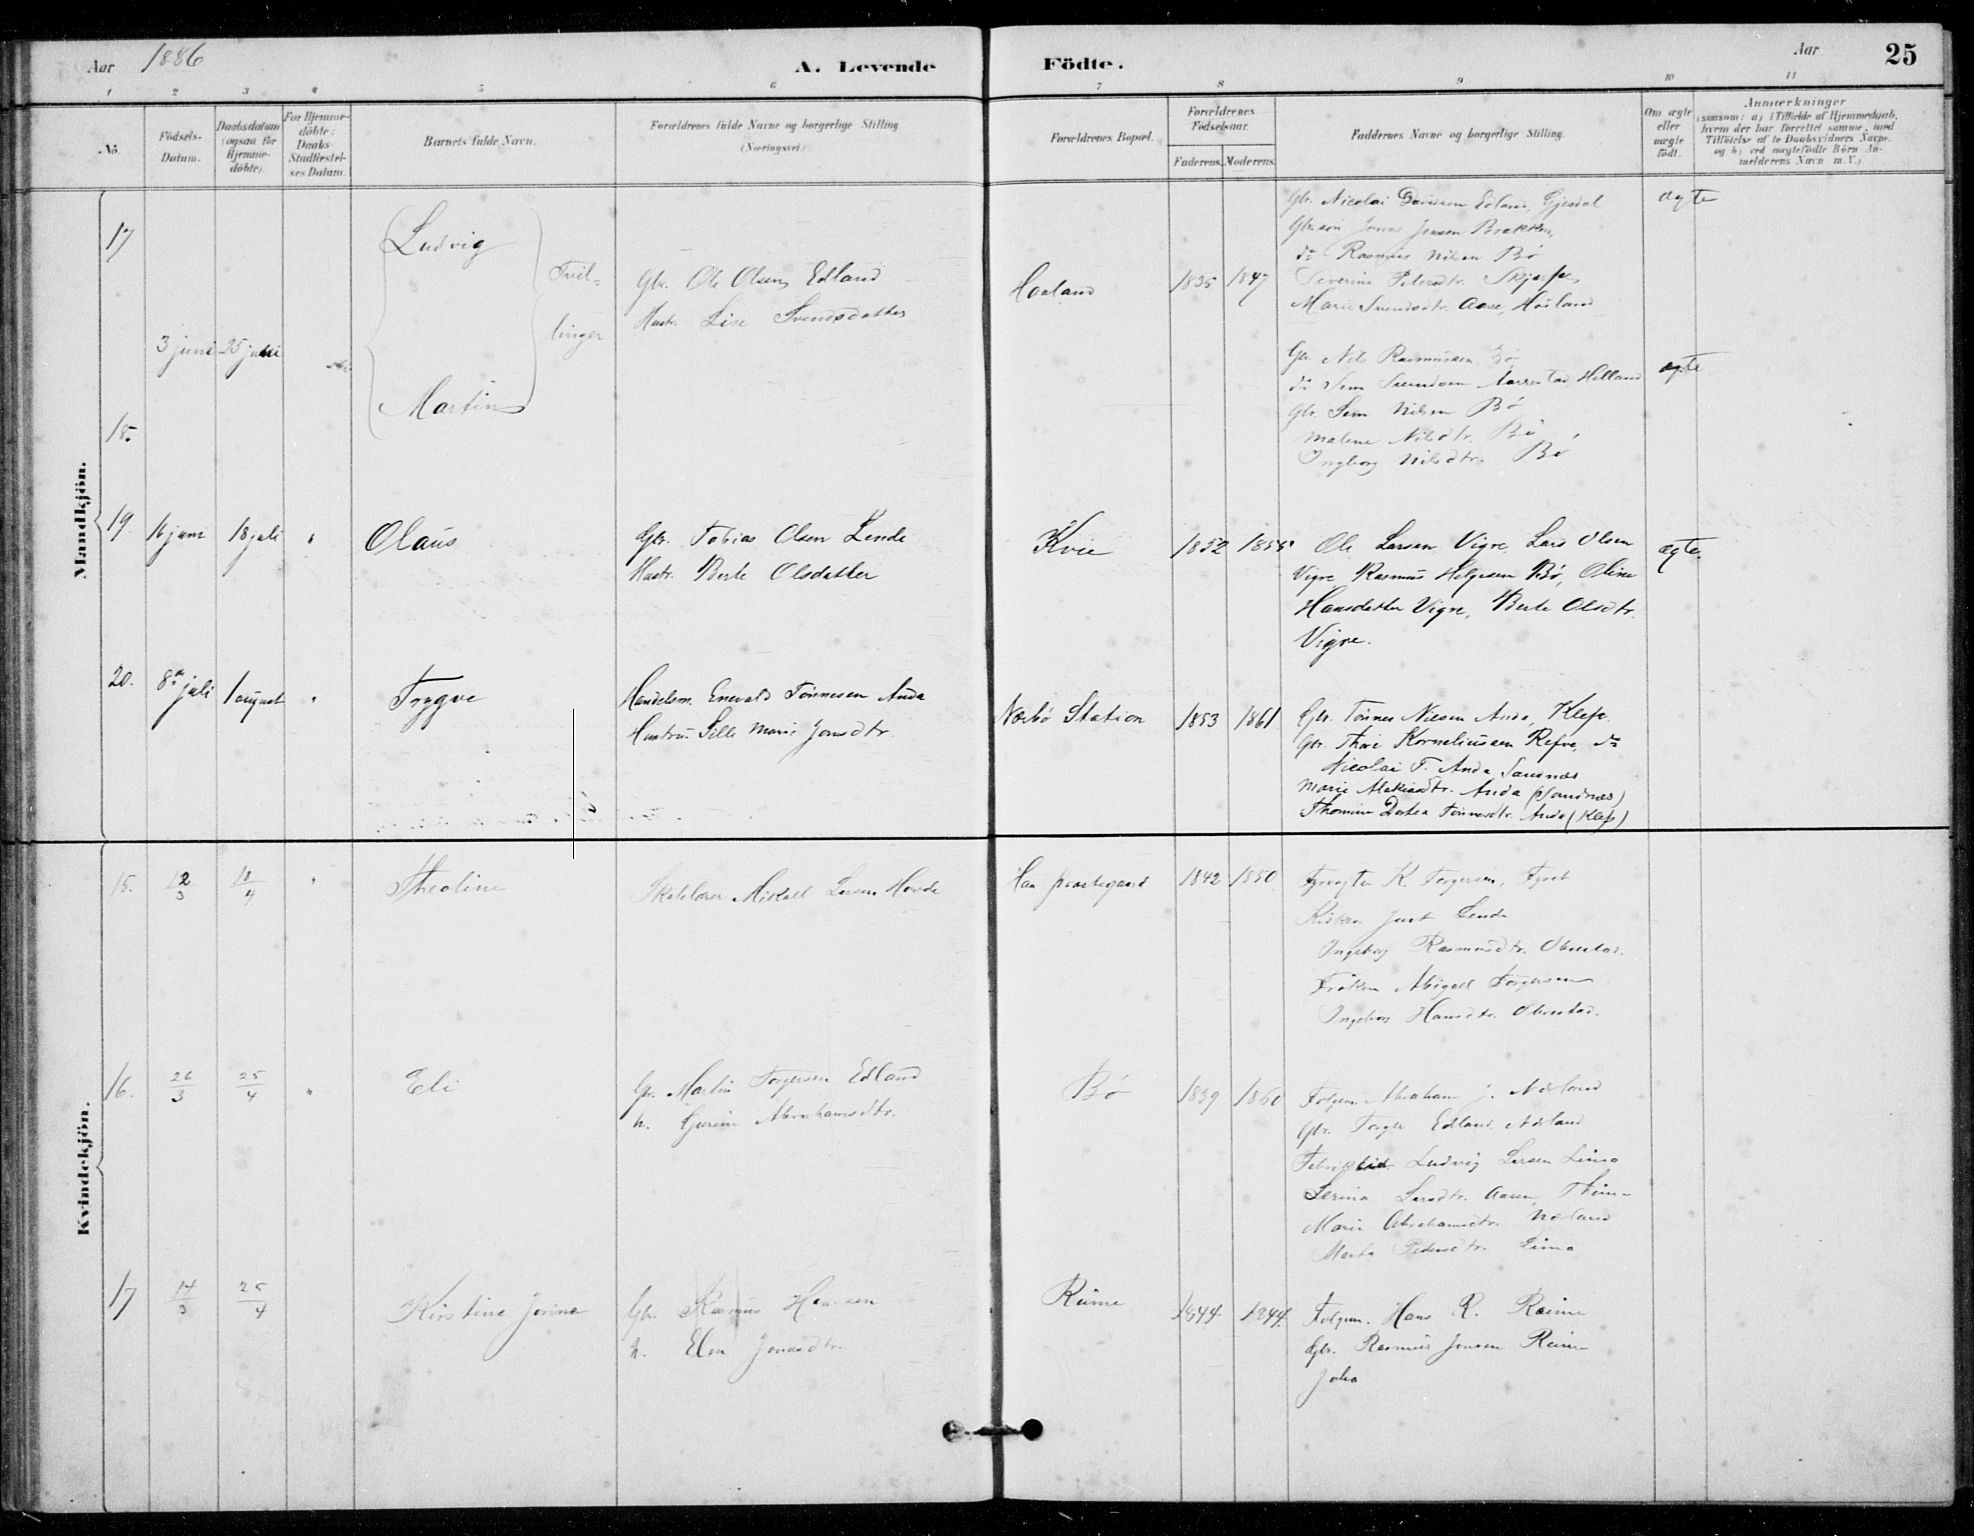 Aar 1886
A. Levende Födte.
Aar
25
1 2 3 4 5 6 7 8 9 10 11
No.
Födsels-Datum.
Daabsdatum (ogsaa for Hjemme-döbte).
For Hjemme-döbte: Daabs-Stadfæstel-ses Datum.
Barnets fulde Navn.
Forældrenes fulde Navne og borgerlige Stilling (Næringsvei.)
Forældrenes Bopæl.
Forældrenes Födselsaar.
Faderens. Moderens.
Faddernes Navne og borgerlige Stilling.
Om ægte eller uægte födt.
Anmærkninger
(saasom: a) i Tilfælde af Hjemmedaab, hvem der har forrettet samme, med Tilföielse af to Daabsvidners Navne, og b) ved uægtefödte Börn An-melderens Navn m. V.)
Mandkjön.
17
3 juni 25 juli
Ludvig
Tvil-
linger
Gbr. Ole Olsen Edland
Hustr. Lise Svendsdatter
Haaland
1835 1847
Gbr. Nicolai Edland, Gjesdal
Gbr.søn Jonas Jensen Brekken,
do Rasmus Nilsen Bø
Severine Petersdtr.
Marie Svendsdtr. Aase, Høiland
ægte
18.
Martin
Gbr. Nils Rasmussen Bø
do Sem Svendsen Helland
Gbr. Sem Nilsen Bø
Malene Nilsdtr. Bø
Ingeborg Nilsdtr. Bø
ægte
19.
16 juni 18 juli "
Olaus
Gbr. Tobias Olsen Lende
Hustr. Berte Olsdatter
Kvie
1852 1855
Ole Larsen Vigre, Lars Olsen
Vigre, Rasmus Helgesen Bø, Oline
Hansdatter Vigre, Berte Olsdtr.
Vigre.
ægte.
20.
8de juli 1 august "
Trygve
Handelsm. Enevald Tønnesen Anda
Hustru Sille Marie Jonsdtr.
Nærbø Station
1853 1861
Gbr. Tønnes Nilsen Anda, Klep.
Gbr. Thore Korneliussen Refve, do
Nicolai T. Anda Sandnæs
Marie Anda (Sandnæs)
Thomine Dortea Tønnesdtr. Anda (Klep)
Kvindekjön.
15.
12/3 11/4 "
Theoline
Skolelærer Mikael Larsen Hovde
Haa præstegaard
1842 1850
Fyrvogter K. Torgersen, Fyret
Just Lende
Ingeborg Rasmusdtr. Obrestad.
Frøken Abigael Torgersen
Ingeborg Hansdtr. Obrestad.
16.
26/3 25/4 "
Eli
Gbr. Martin Torgersen Edland
h. Gurine Abrahamsdtr.
Bø
1839 1860
Folgem. Abraham J. Nærland
Gbr. Torger Edland Nærland
Ludvig Larsen Lima
Serina Larsdtr. Aasen, Thime
Marie Abrahamsdtr. Nærland
Marta Pedersdtr. Lima
17
14/3 25/4
Kirstine Jorine
Gbr. Rasmus Hansen
h. Elen Jonasdtr.
Reime
1844 1844
Folgem. Hans R. Reime
Gbr. Rasmus Jonsen Reime
Joha